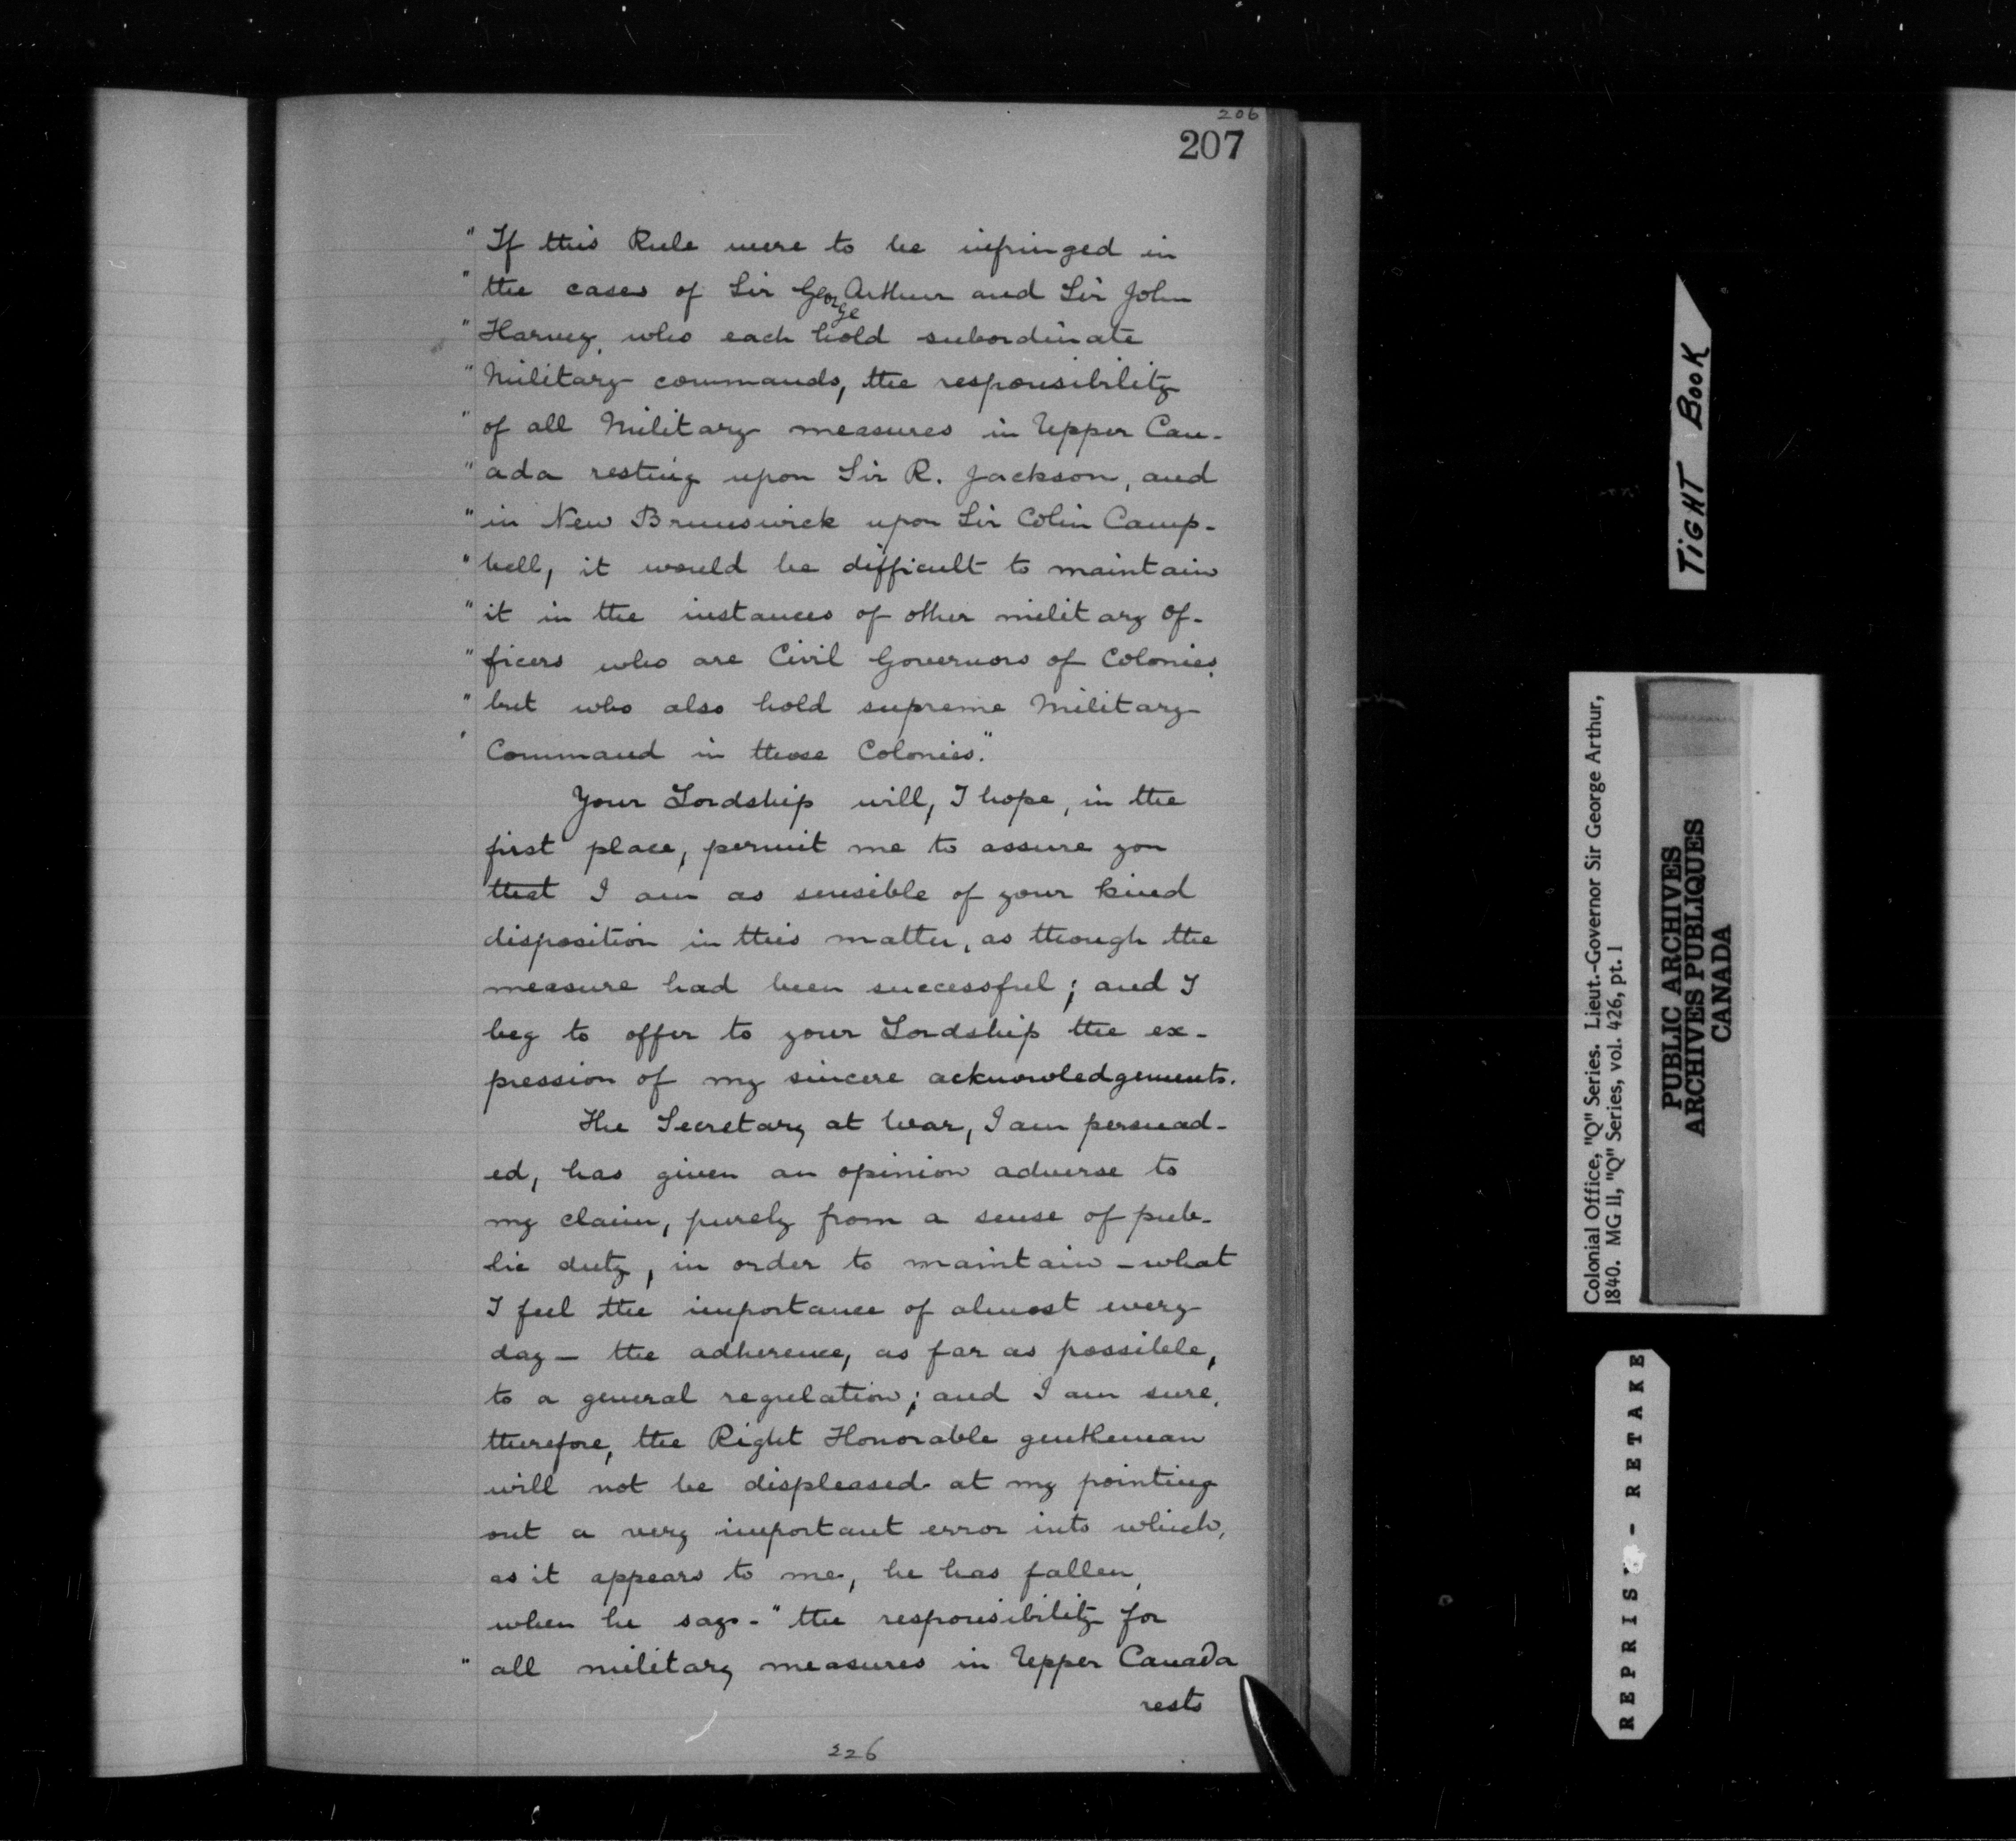 206
207
" If this Rule were to be infringed in
" the cases of Sir George Arthur and Sir John
" Harvey, who each hold subordinate
" Military commands, the responsibility
" of all Military measures in Upper Can-
" ada resting upon Sir R. Jackson, and
" in New Brunswick upon Sir Colin Camp-
" bell, it would be difficult to maintain
" it in the instances of other military of-
" ficers who are Civil Governors of Colonies,
" but who also hold supreme Military
' Command in those Colonies."
Your Lordship will, I hope, in the
first place, permit me to assure you
that I am as sensible of your kind
disposition in this matter, as though the
measure had been successful; and I
beg to offer to your Lordship the ex-
pression of my sincere acknowledgements.
The Secretary at War, I am persuad-
ed, has given an opinion adverse to
my claim, purely from a sense of pub-
lic duty, in order to maintain - what
I feel the importance of almost every
day - the adherence, as far as possible,
to a general regulation; and I am sure,
therefore, the Right Honorable gentleman
will not be displeased at my pointing
out a very important error into which,
as it appears to me, he has fallen,
when he says - " the responsibility for
" all military measures in Upper Canada
rests
226
TIGHT BOOK
Colonial Office, "Q" Series. Lieut.-Governor Sir George Arthur,
1840. MG 11, "Q" Series, vol. 426, pt. 1
PUBLIC ARCHIVES
ARCHIVES PUBLIQUES
CANADA
REPRISE - RETAKE